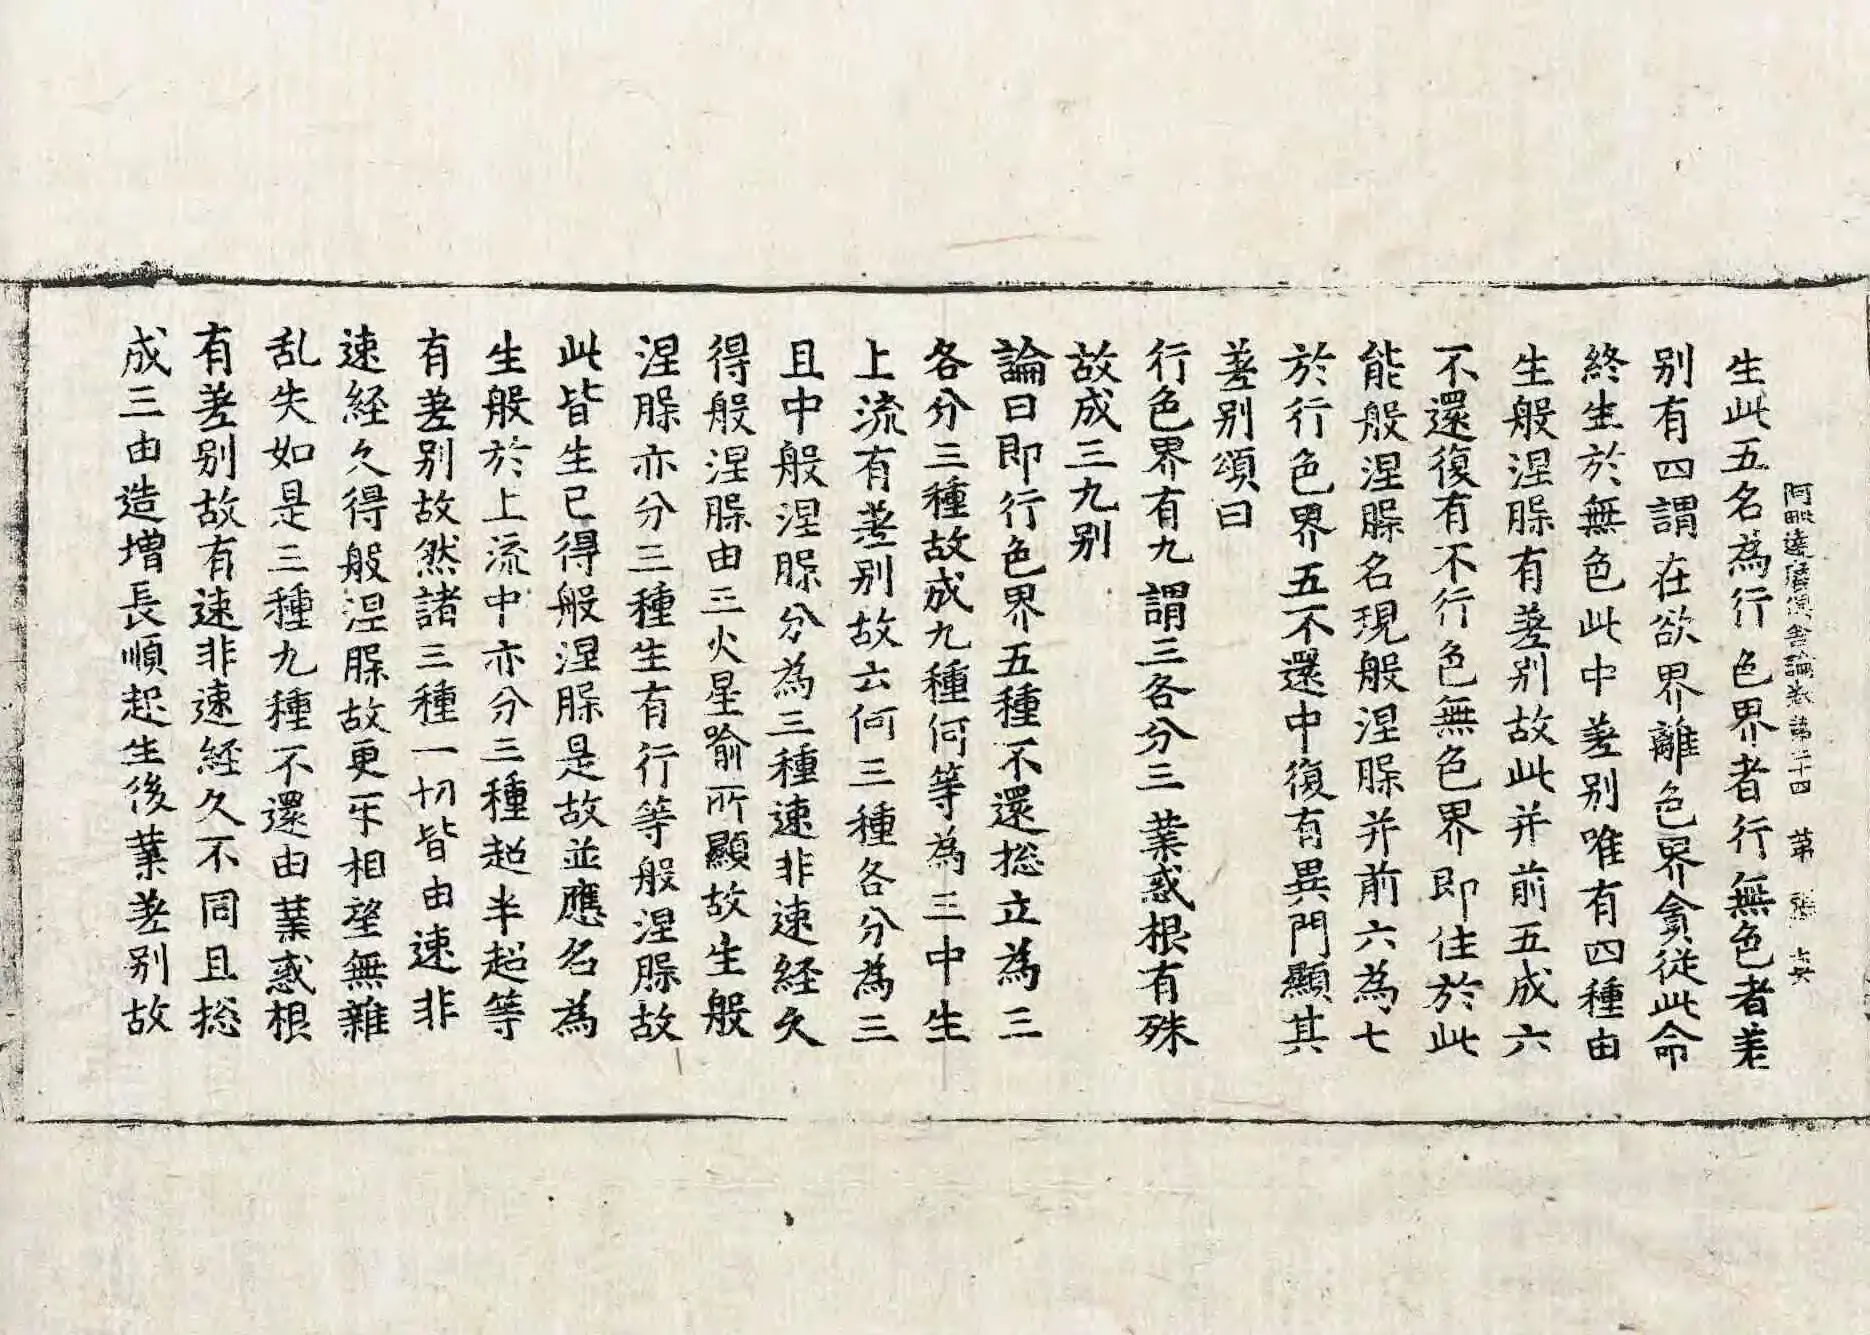 阿毗達磨俱舍論卷第二十四 第 張 
生此五名為行色界者行無色者差
別有四謂在欲界離色界貪從此命
終生於無色此中差別唯有四種由
生般涅腂有差別故此并前五成六
不還復有不行色無色界即住於此
能般涅腂名現般涅腂并前六為七
於行色界五不還中復有異門顯其
差別頌曰
行色界有九謂三各分三業惑根有殊
故成三九別
論曰即行色界五種不還捴立為三
各分三種故成九種何等為三中生
上流有差別故云何三種各分為三
且中般涅腂分為三種速非速經久
得般涅腂由三火星喻所顯故生般
涅腂亦分三種生有行等般涅腂故
此皆生已得般涅腂是故並應名為
生般於上流中亦分三種超半超等
有差別故然諸三種一切皆由速非
速經久得般涅腂故更不相望無雜
乱失如是三種九種不還由業惑根
有差別故有速非速經久不同且捴
成三由造增長順起生後業差別故